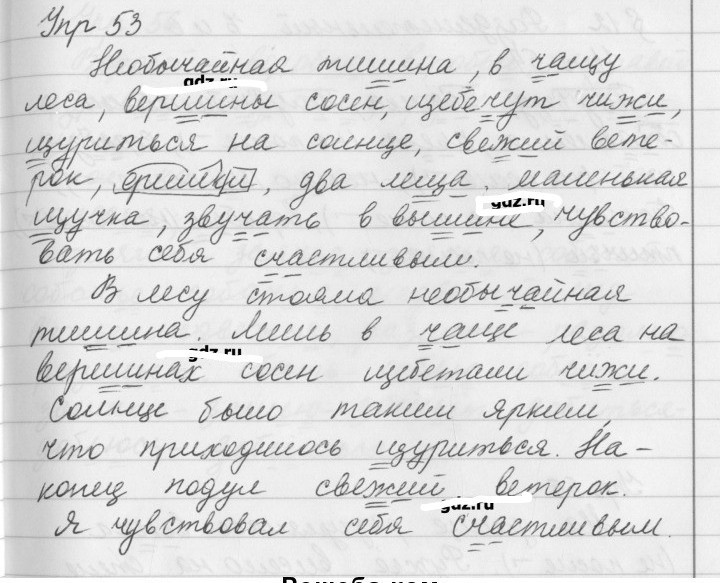 Упр 53
Необычайная тишина, в чащу
gdz.ru
леса, вершины сосен, щебечут чижи,
щуриться на солнце, свежий вете-
рок, два леща, маленькая
gdz.ru
щучка, звучать в вышине, чувство-
вать себя счастливым.
В лесу стояла необычайная
тишина. Лишь в чаще леса на
gdz.ru
вершинах сосен щебетали чижи.
Солнце было таким ярким,
что приходилось щуриться. На-
конец подул свежий ветерок.
gdz.ru
Я чувствовал себя счастливым.